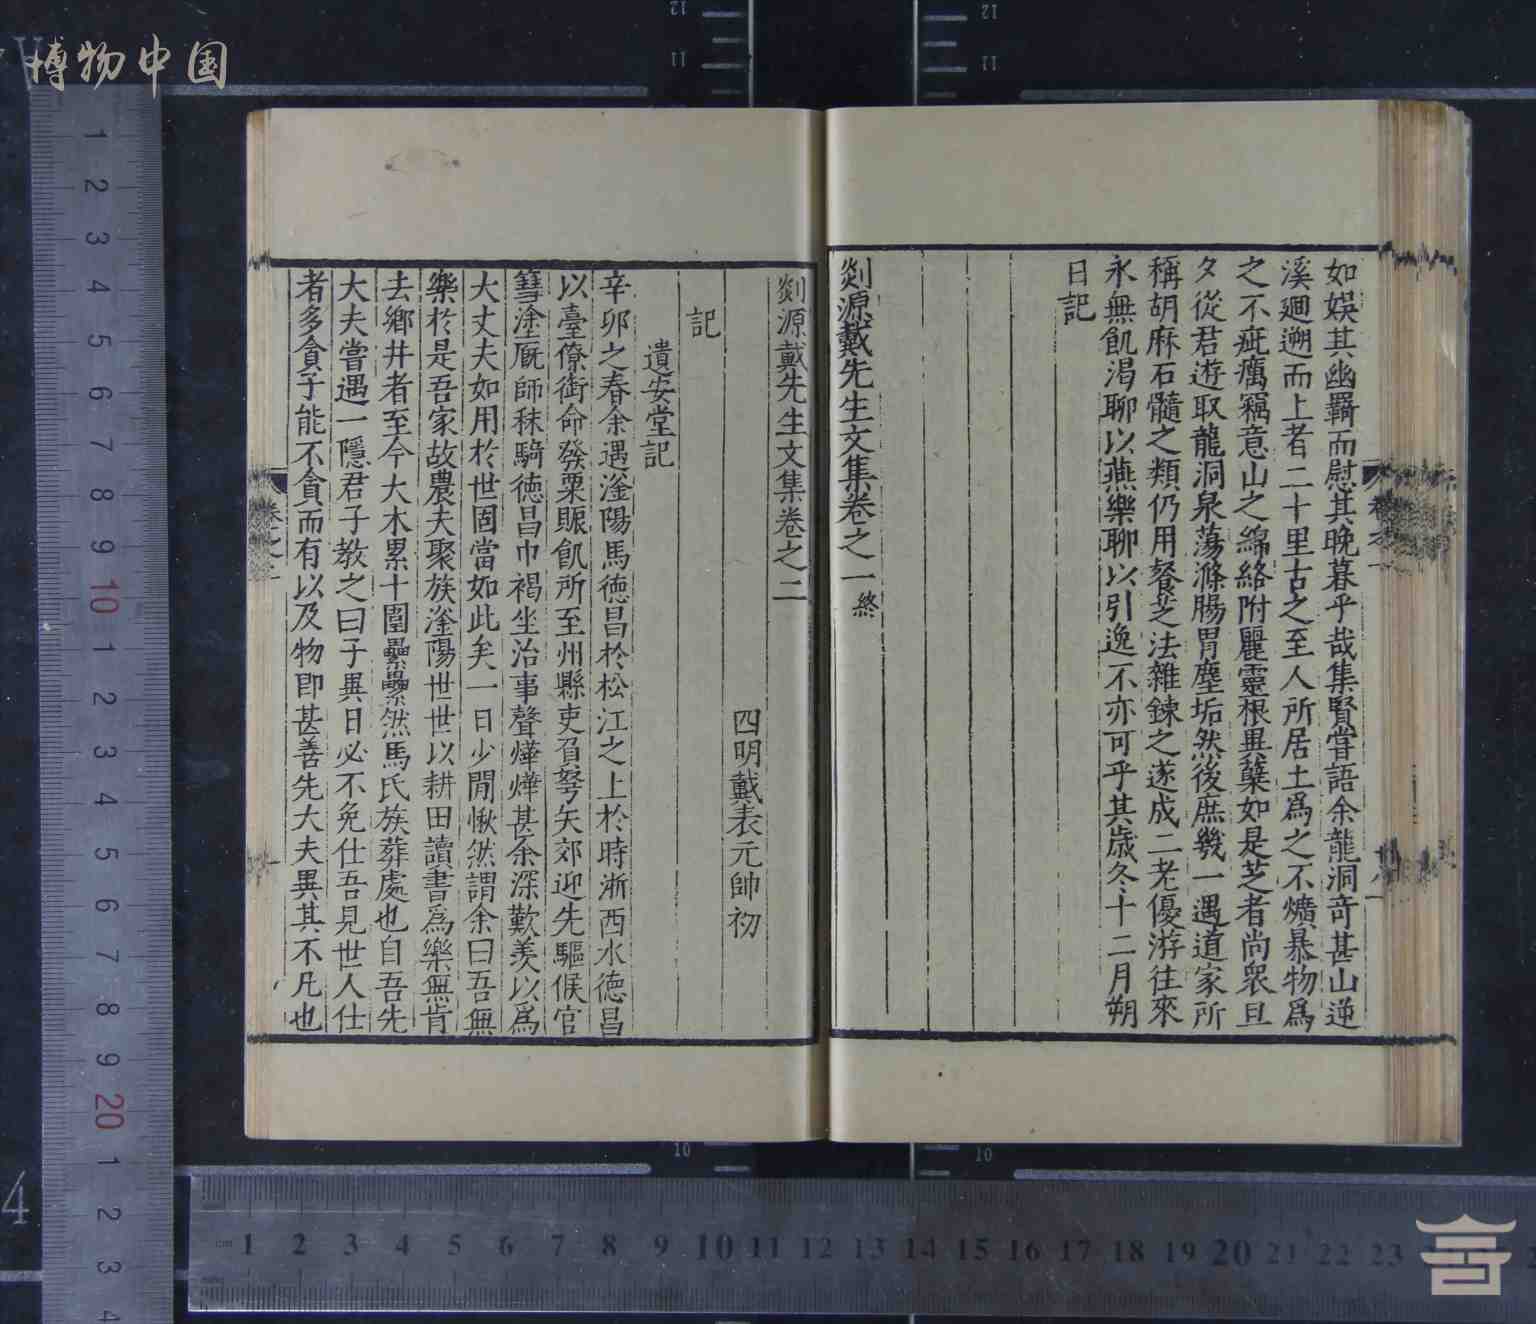 博物中国
如娱其幽羇而慰其晚暮乎哉集賢嘗語余龍洞竒甚山逆
溪廻遡而上者二十里古之至人所居土爲之不爌暴物爲
之不疵癘竊意山之綿絡附麗靈根異蘖如是芝者尚衆旦
夕從君遊取龍洞泉蕩滌腸胃塵垢然後庶幾一遇道家所
稱胡麻石髓之類仍用餐芝法雜錬之遂成二老優游往來
永無飢渇聊以燕樂聊以引逸不亦可乎其歳冬十二月朔
日記
剡源戴先生文集卷之一終
剡源戴先生文集卷之二
四明戴表元帥初
記
遺安堂記
辛卯之春余遇滏陽馬徳昌於松江之上於時淅西水徳昌
以臺僚銜命發粟賑飢所至州縣吏負弩矢郊迎先驅候官
篲塗厩師秣騎徳昌巾褐坐治事聲燁燁甚余深歎羡以爲
大丈夫如用於世固當如此矣一日少閒愀然謂余曰吾無
樂於是吾家故農夫聚族滏陽世世以耕田讀書爲樂無肯
去鄉井者至今大木累十圍纍纍然馬氏族葬處也自吾先
大夫嘗遇一隱君子教之曰子異日必不免仕吾見世人仕
者多貪子能不貪而有以及物即甚善先大夫異其不凡也
卷之二
1 2 3 4 5 6 7 8 9 10 1 2 3 4 5 6 7 8 9 20 1 2 3 4
1 2 3 4 5 6 7 8 9 10 11 12 13 14 15 16 17 18 19 20 21 22 23
12
11
12
11
10
10
4